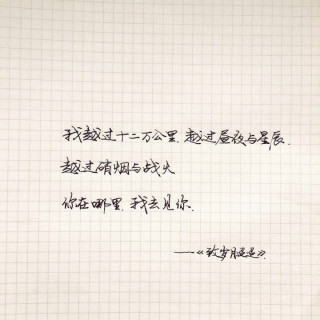 我越过十二万公里,越过昼夜与星辰.
越过硝烟与战火
你在哪里,我去见你.
——《致岁月迢迢》